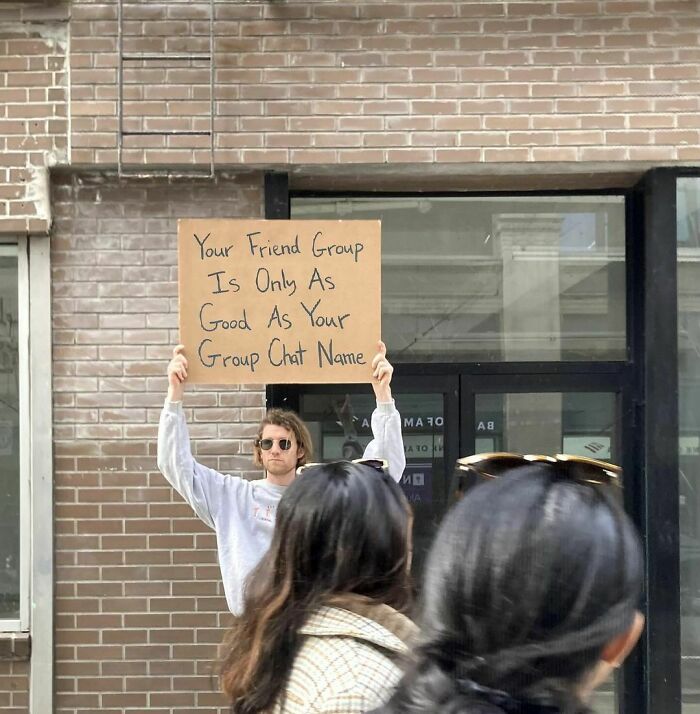 Your Friend Group
Is Only As
Good As Your
Group Chat Name